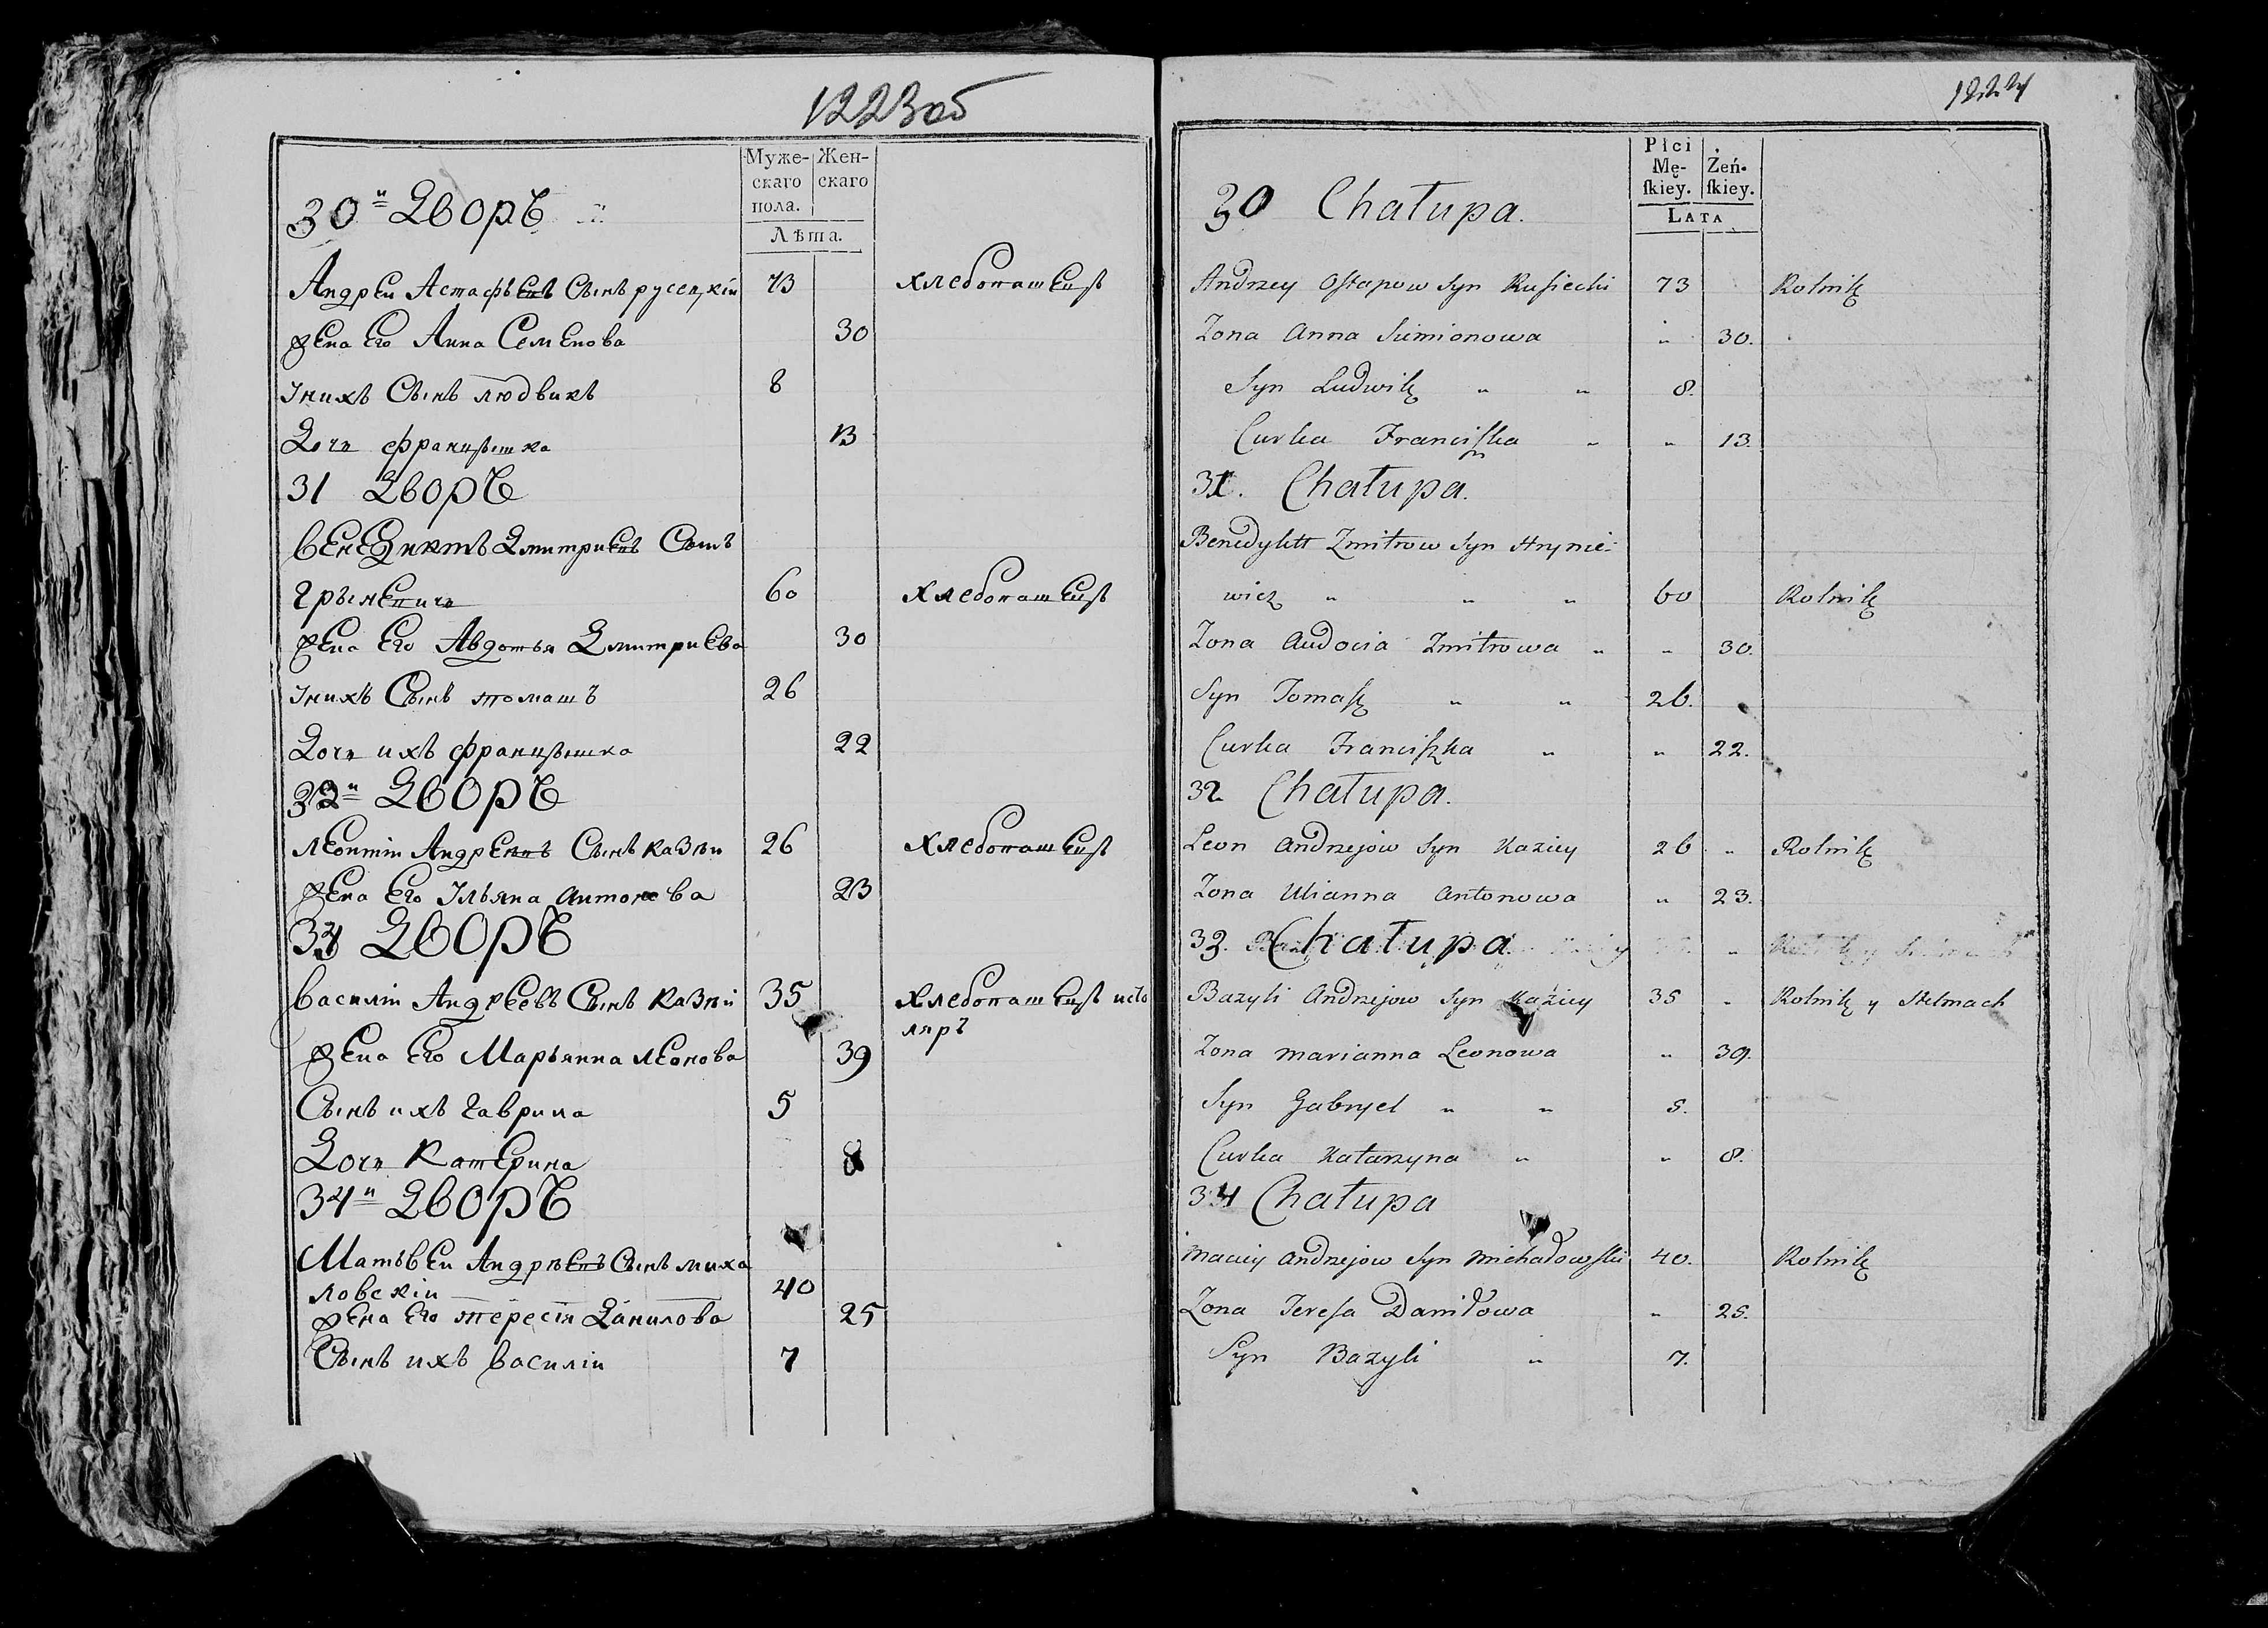 1223об
Муже-
скаго
пола.
Жен-
скаго
Лѣта.
30й Дворъ
Андреи Астафьевъ Сынъ русецкiи 73 хлебопашецъ
жена Его Анна Семенова 30
Iнихъ Сынъ людвикъ 8
Дочь францышка 13
31 Дворъ
венедиктъ Дмитриевъ Сынъ
грыневичь 60 хлебопашецъ
жена Его Авдотья Дмитриева 30
Iнихъ Сынъ томашъ 26
Дочь ихъ францышка 22
32й Дворъ
леонтiи Андреевъ Сынъ казѣи 26 хлебопашецъ
жена Его Iльяна антонова 23
33 Дворъ
василiи Андреевъ Сынъ казѣи 35 хлебопашецъ исто
ляръ
жена Его Марьянна леонова 39
Сынъ ихъ гаврила 5
Дочь Катерина 8
34й Дворъ
Матьвеи Андрѣевъ Сынъ миха
ловскiи 40
жена Его тересiя Данилова 25
Сынъ ихъ василiи 7
1224
Płci
Mę-
ſkiey.
Żeń-
ſkiey.
LATA
30 Chałupa.
Andrzey Ostapow Syn Rusiecki 73 Rolnik
Zona Anna Simionowa " 30.
Syn Ludwik " " 8.
Curka Franciſzka " " 13.
31. Chałupa.
Benedyktt Zmitrow Syn Hrynie-
wicz " " " 60 Rolnik
Zona Audocia Zmitrowa " " 30.
Syn Tomaſz " " 26.
Curka Franciſzka " " 22.
32 Chałupa.
Leon Andrzejow Syn Kaziey 26 " Rolnik
Zona Ulianna Antonowa " 23.
33. Chałupa.
Bazyli Andrzejow Syn Kaziey 35 " Rolnik y Stelmach
Zona Marianna Leonowa " 39.
Syn Gabryel " " 5.
Curka Katarzyna " " 8.
34 Chałupa
Maciey Andrzejow Syn Michałowſki 40. Rolnik
Zona Tereſa Daniłowa " 25.
Syn Bazyli " 7.